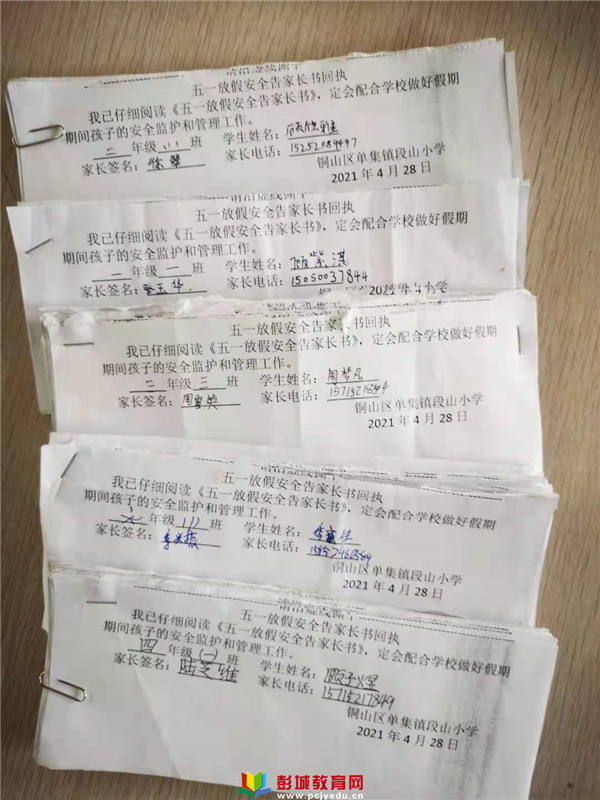 五一放假安全告家长书回执
我已仔细阅读《五一放假安全告家长书》，定会配合学校做好假期
期间孩子的安全监护和管理工作。
二 年级 (1) 班 学生姓名：
家长签名： 家长电话：15252084497
铜山区单集镇段山小学
2021年4月28日
五一放假安全告家长书回执
我已仔细阅读《五一放假安全告家长书》，定会配合学校做好假期
期间孩子的安全监护和管理工作。
一 年级 一 班 学生姓名：顾紫淇
家长签名： 家长电话：15050037844
五一放假安全告家长书回执
我已仔细阅读《五一放假安全告家长书》，定会配合学校做好假期
期间孩子的安全监护和管理工作。
二 年级 三 班 学生姓名：周梦凡
家长签名： 家长电话：
铜山区单集镇段山小学
2021年4月28日
五一放假安全告家长书回执
我已仔细阅读《五一放假安全告家长书》，定会配合学校做好假期
期间孩子的安全监护和管理工作。
六 年级 (1) 班 学生姓名：
家长签名： 家长电话：
铜山区单集镇段山小学
2021年4月28日
五一放假安全告家长书回执
我已仔细阅读《五一放假安全告家长书》，定会配合学校做好假期
期间孩子的安全监护和管理工作。
四 年级 (一) 班 学生姓名：
家长签名：陆芝维 家长电话：15715217849
铜山区单集镇段山小学
2021年4月28日
彭城教育网
www.pcjyedu.cn